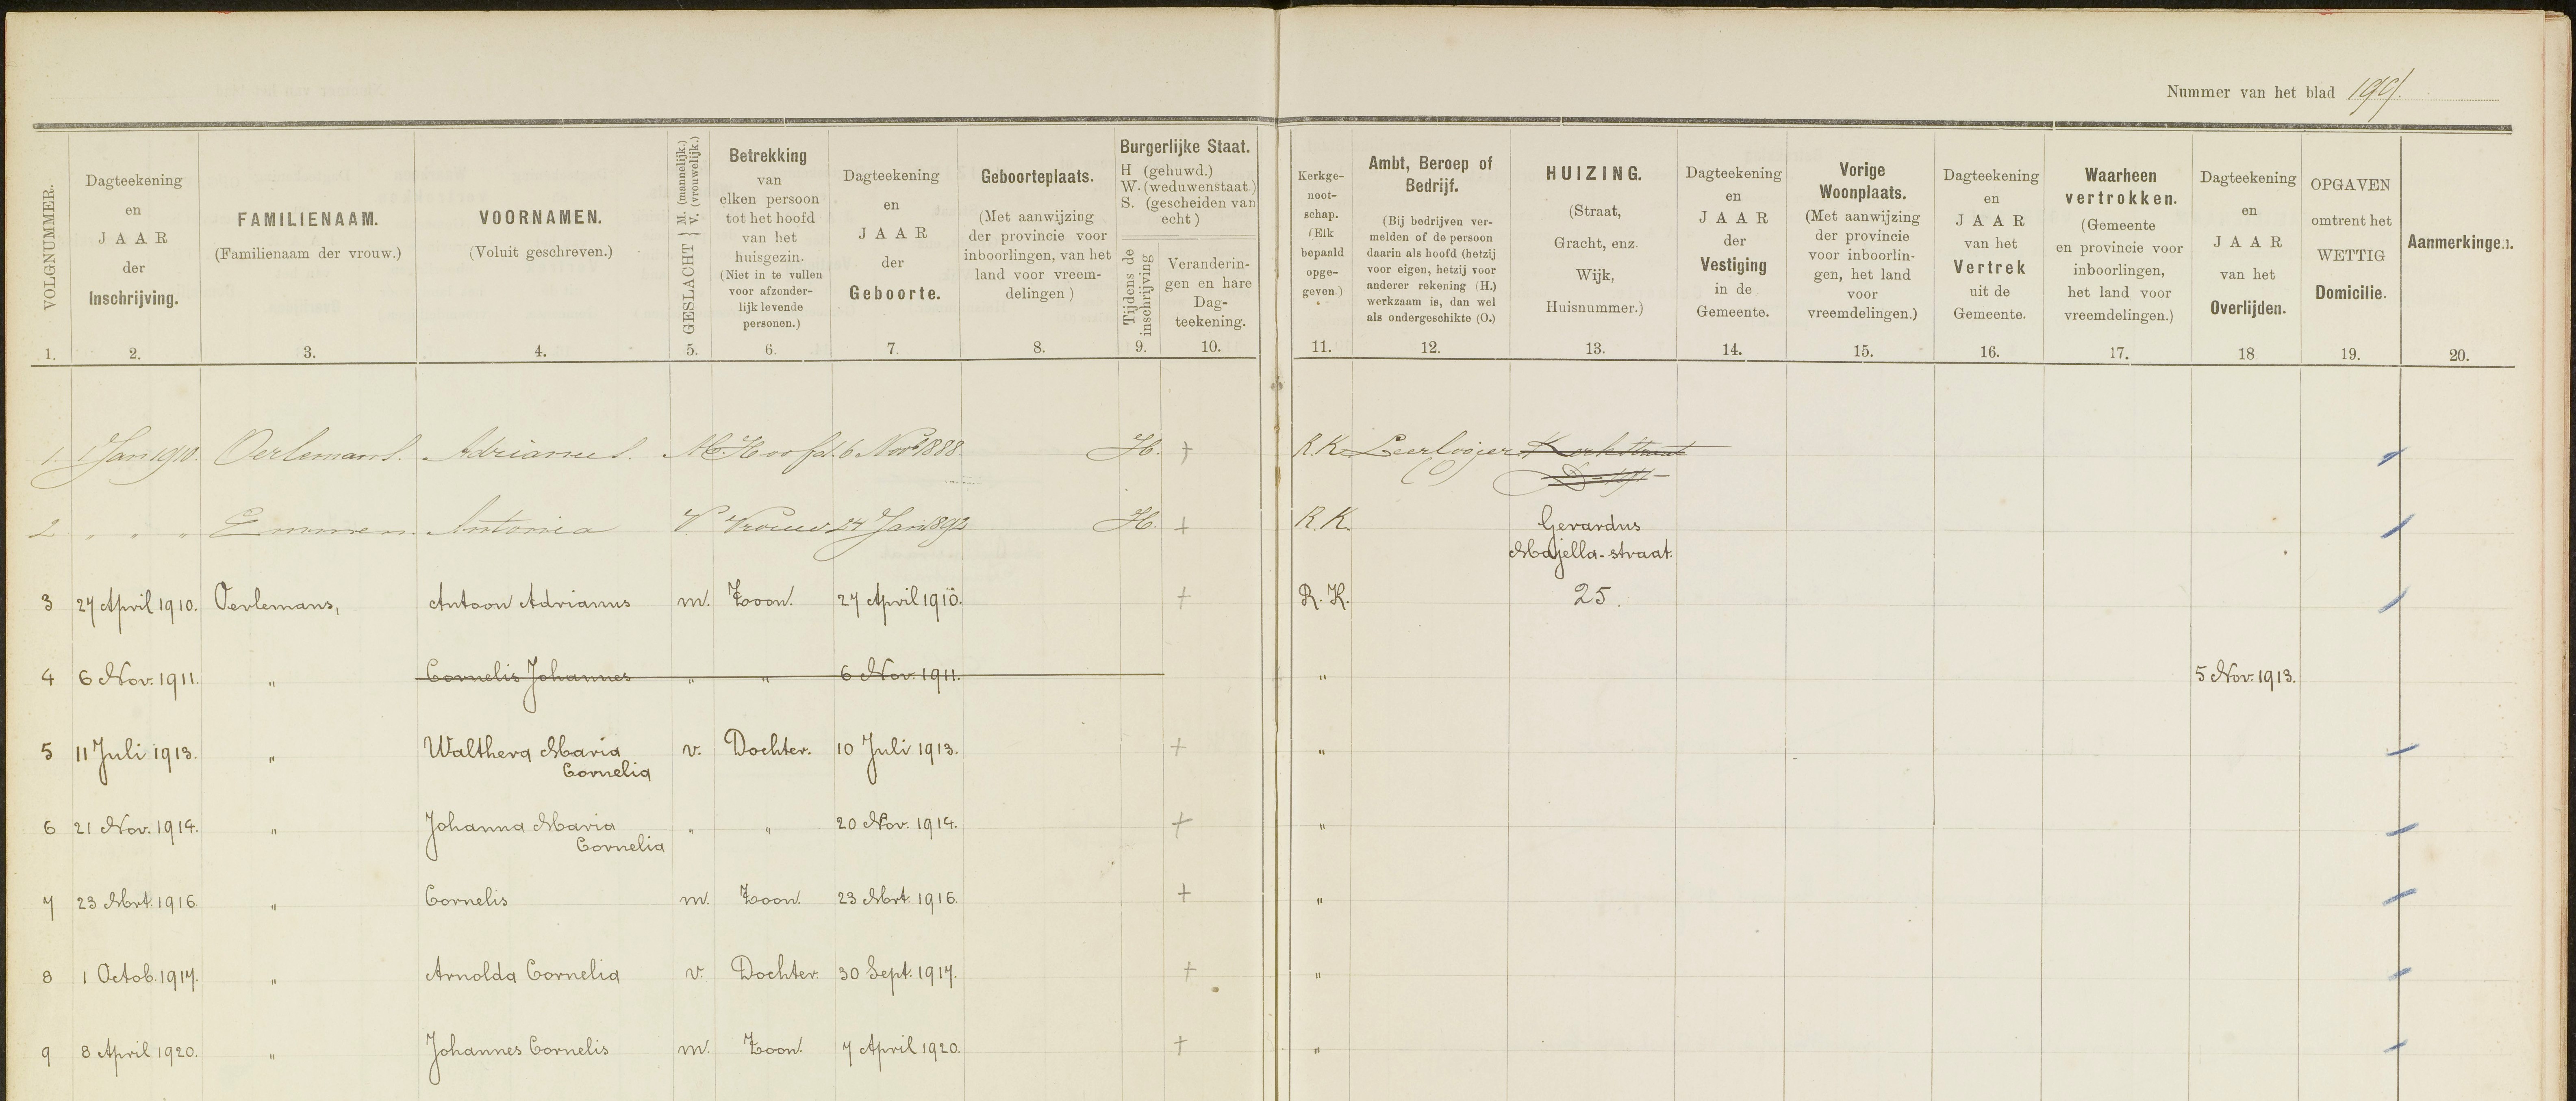 Nummer van het blad 199.
VOLGNUMMER.
1.
Dagteekening
en
JAAR
der
Inschrijving.
2.
FAMILIENAAM.
(Familienaam der vrouw.)
3.
VOORNAMEN.
(Voluit geschreven.)
4.
GESLACHT } M. (mannelijk.) V. (vrouwelijk.)
5.
Betrekking
van
elken persoon
tot het hoofd
van het
huisgezin.
(Niet in te vullen
voor afzonder-
lijk levende
personen.)
6.
Dagteekening
en
JAAR
der
Geboorte.
7.
Geboorteplaats.
(Met aanwijzing
der provincie voor
inboorlingen, van het
land voor vreem-
delingen)
8.
Burgerlijke Staat.
H (gehuwd.)
W. (weduwenstaat)
S. (gescheiden van
echt)
Tijdens de
inschrijving
9.
Veranderin-
gen en hare
Dag-
teekening.
10.
Kerkge-
noot-
schap.
(Elk
bepaald
opge-
geven)
11.
Ambt, Beroep of
Bedrijf.
(Bij bedrijven ver-
melden of de persoon
daarin als hoofd (hetzij
voor eigen, hetzij voor
anderer rekening (H.)
werkzaam is, dan wel
als ondergeschikte (O.)
12.
HUIZING.
(Straat,
Gracht, enz.
Wijk,
Huisnummer.)
13.
Dagteekening
en
JAAR
der
Vestiging
in de
Gemeente.
14.
Vorige
Woonplaats.
(Met aanwijzing
der provincie
voor inboorlin-
gen, het land
voor
vreemdelingen.)
15.
Dagteekening
en
JAAR
van het
Vertrek
uit de
Gemeente.
16.
Waarheen
vertrokken.
(Gemeente
en provincie voor
inboorlingen,
het land voor
vreemdelingen.)
17.
Dagteekening
en
JAAR
van het
Overlijden.
18
OPGAVEN
omtrent het
WETTIG
Domicilie.
19.
Aanmerkingen.
20.
1. 1 Jan 1910. Oerlemans. Adrianus. M. Hoofd. 6 Nov 1888. H. + R.K. Leerlooijer Kerkstraat
(O) D-191
2 " " " Emmen. Antonia V. Vrouw 24 Jan 1892 H. + R.K. Gerardus
Majella-straat.
3 27 April 1910. Oerlemans, Antoon Adrianus m. Zoon. 27 April 1910. + R.K. 25.
4 6 Nov. 1911. " Cornelis Johannes " " 6 Nov. 1911. " 5 Nov. 1913.
5 11 Juli 1913. " Walthera Maria v. Dochter. 10 Juli 1913. + "
Cornelia
6 21 Nov. 1914. " Johanna Maria " " 20 Nov. 1914. + "
Cornelia
7 23 Mrt. 1916. " Cornelis m. Zoon. 23 Mrt. 1916. + "
8 1 Octob. 1917. " Arnolda Cornelia v. Dochter. 30 Sept. 1917. + "
9 8 April 1920. " Johannes Cornelis m. Zoon. 7 April 1920. + "